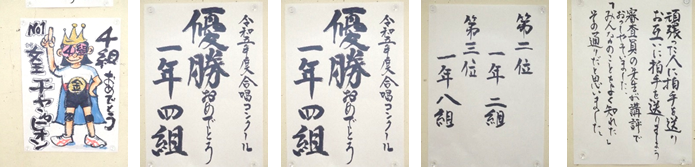 4組
おめでとう
No1
女王
チャンピオン
令和五年度合唱コンクール
優勝おめでとう
一年四組
令和五年度合唱コンクール
優勝おめでとう
一年四組
第二位
一年二組
第三位
一年八組
頑張った人に拍手を送り
お互いに拍手を送りましょう
審査員の先生が講評で
おっしゃいました。
「みんなのことをよく知れた」
その通りだと思いました。